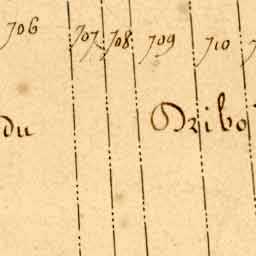 706 707 708 709 710
du Dribo